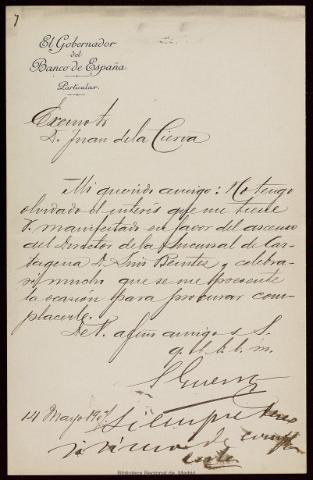 7
El Gobernador
del
Banco de España
Particular.
Excmo Sr
D. Juan de la Cierva
Mi querido amigo: No tengo
olvidado el interés que me tiene
V. manifestado en favor del ascenso
del Director de la Sucursal de Car-
tagena D. Luis Benites y celebra-
ré mucho que se me presente
la ocasión para procurar com-
placerle.
De V. afmo amigo s. S.
q. b. s. m.
S Guerra
14 Mayo
Siempre
Biblioteca Regional de Madrid